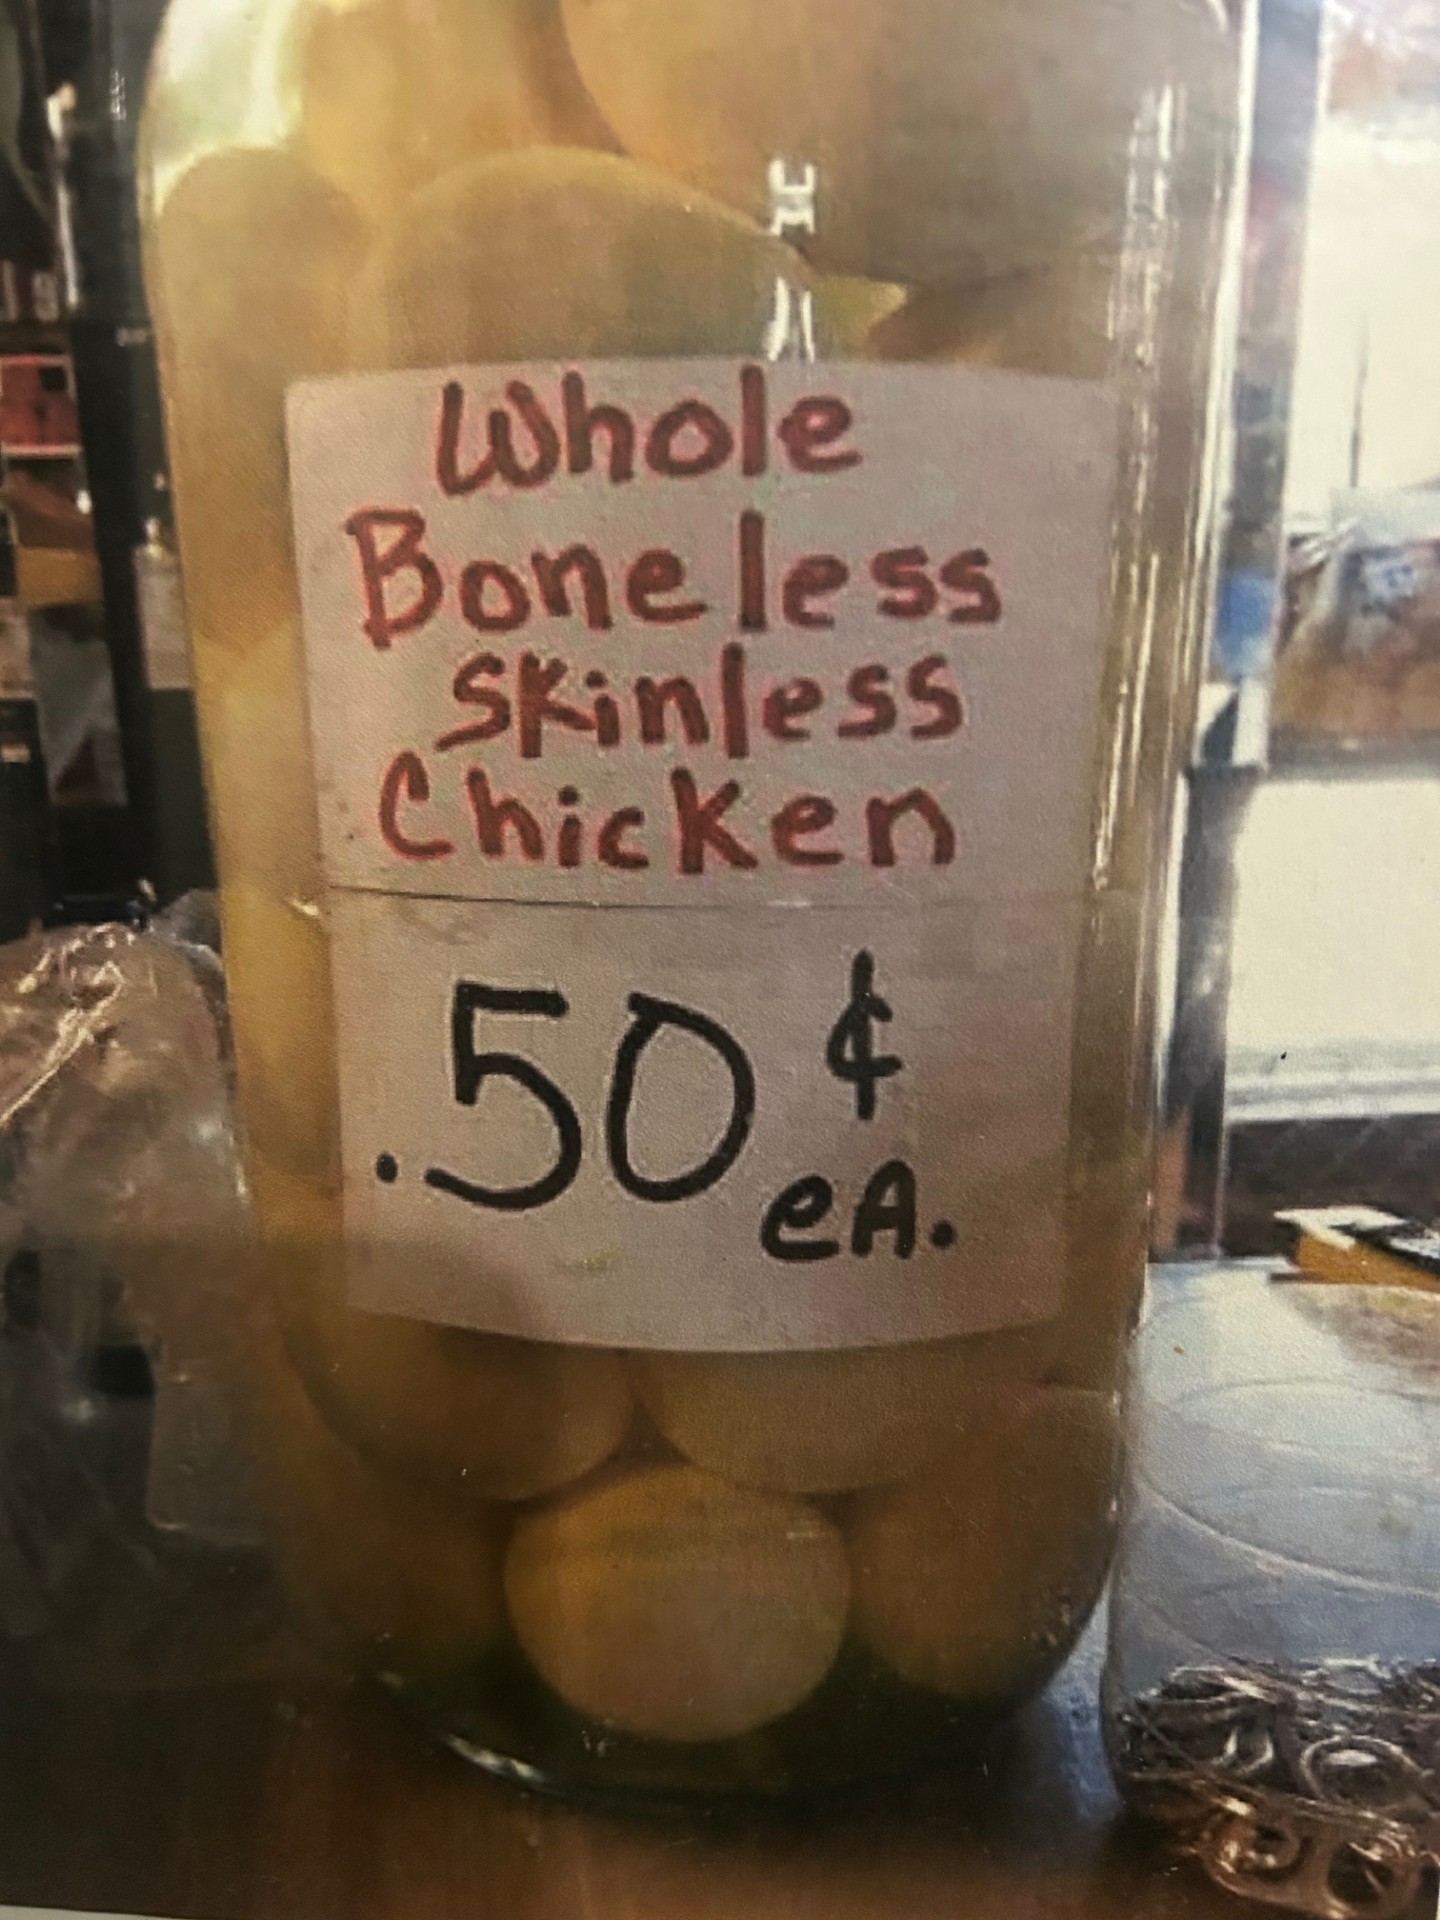 Whole
Boneless
Skinless
Chicken
.50¢
eA.